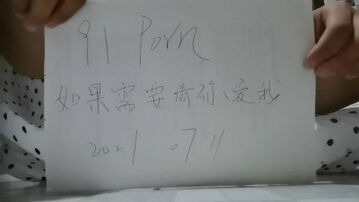 91 Porn
如果需要请你、爱我
2021.07 11